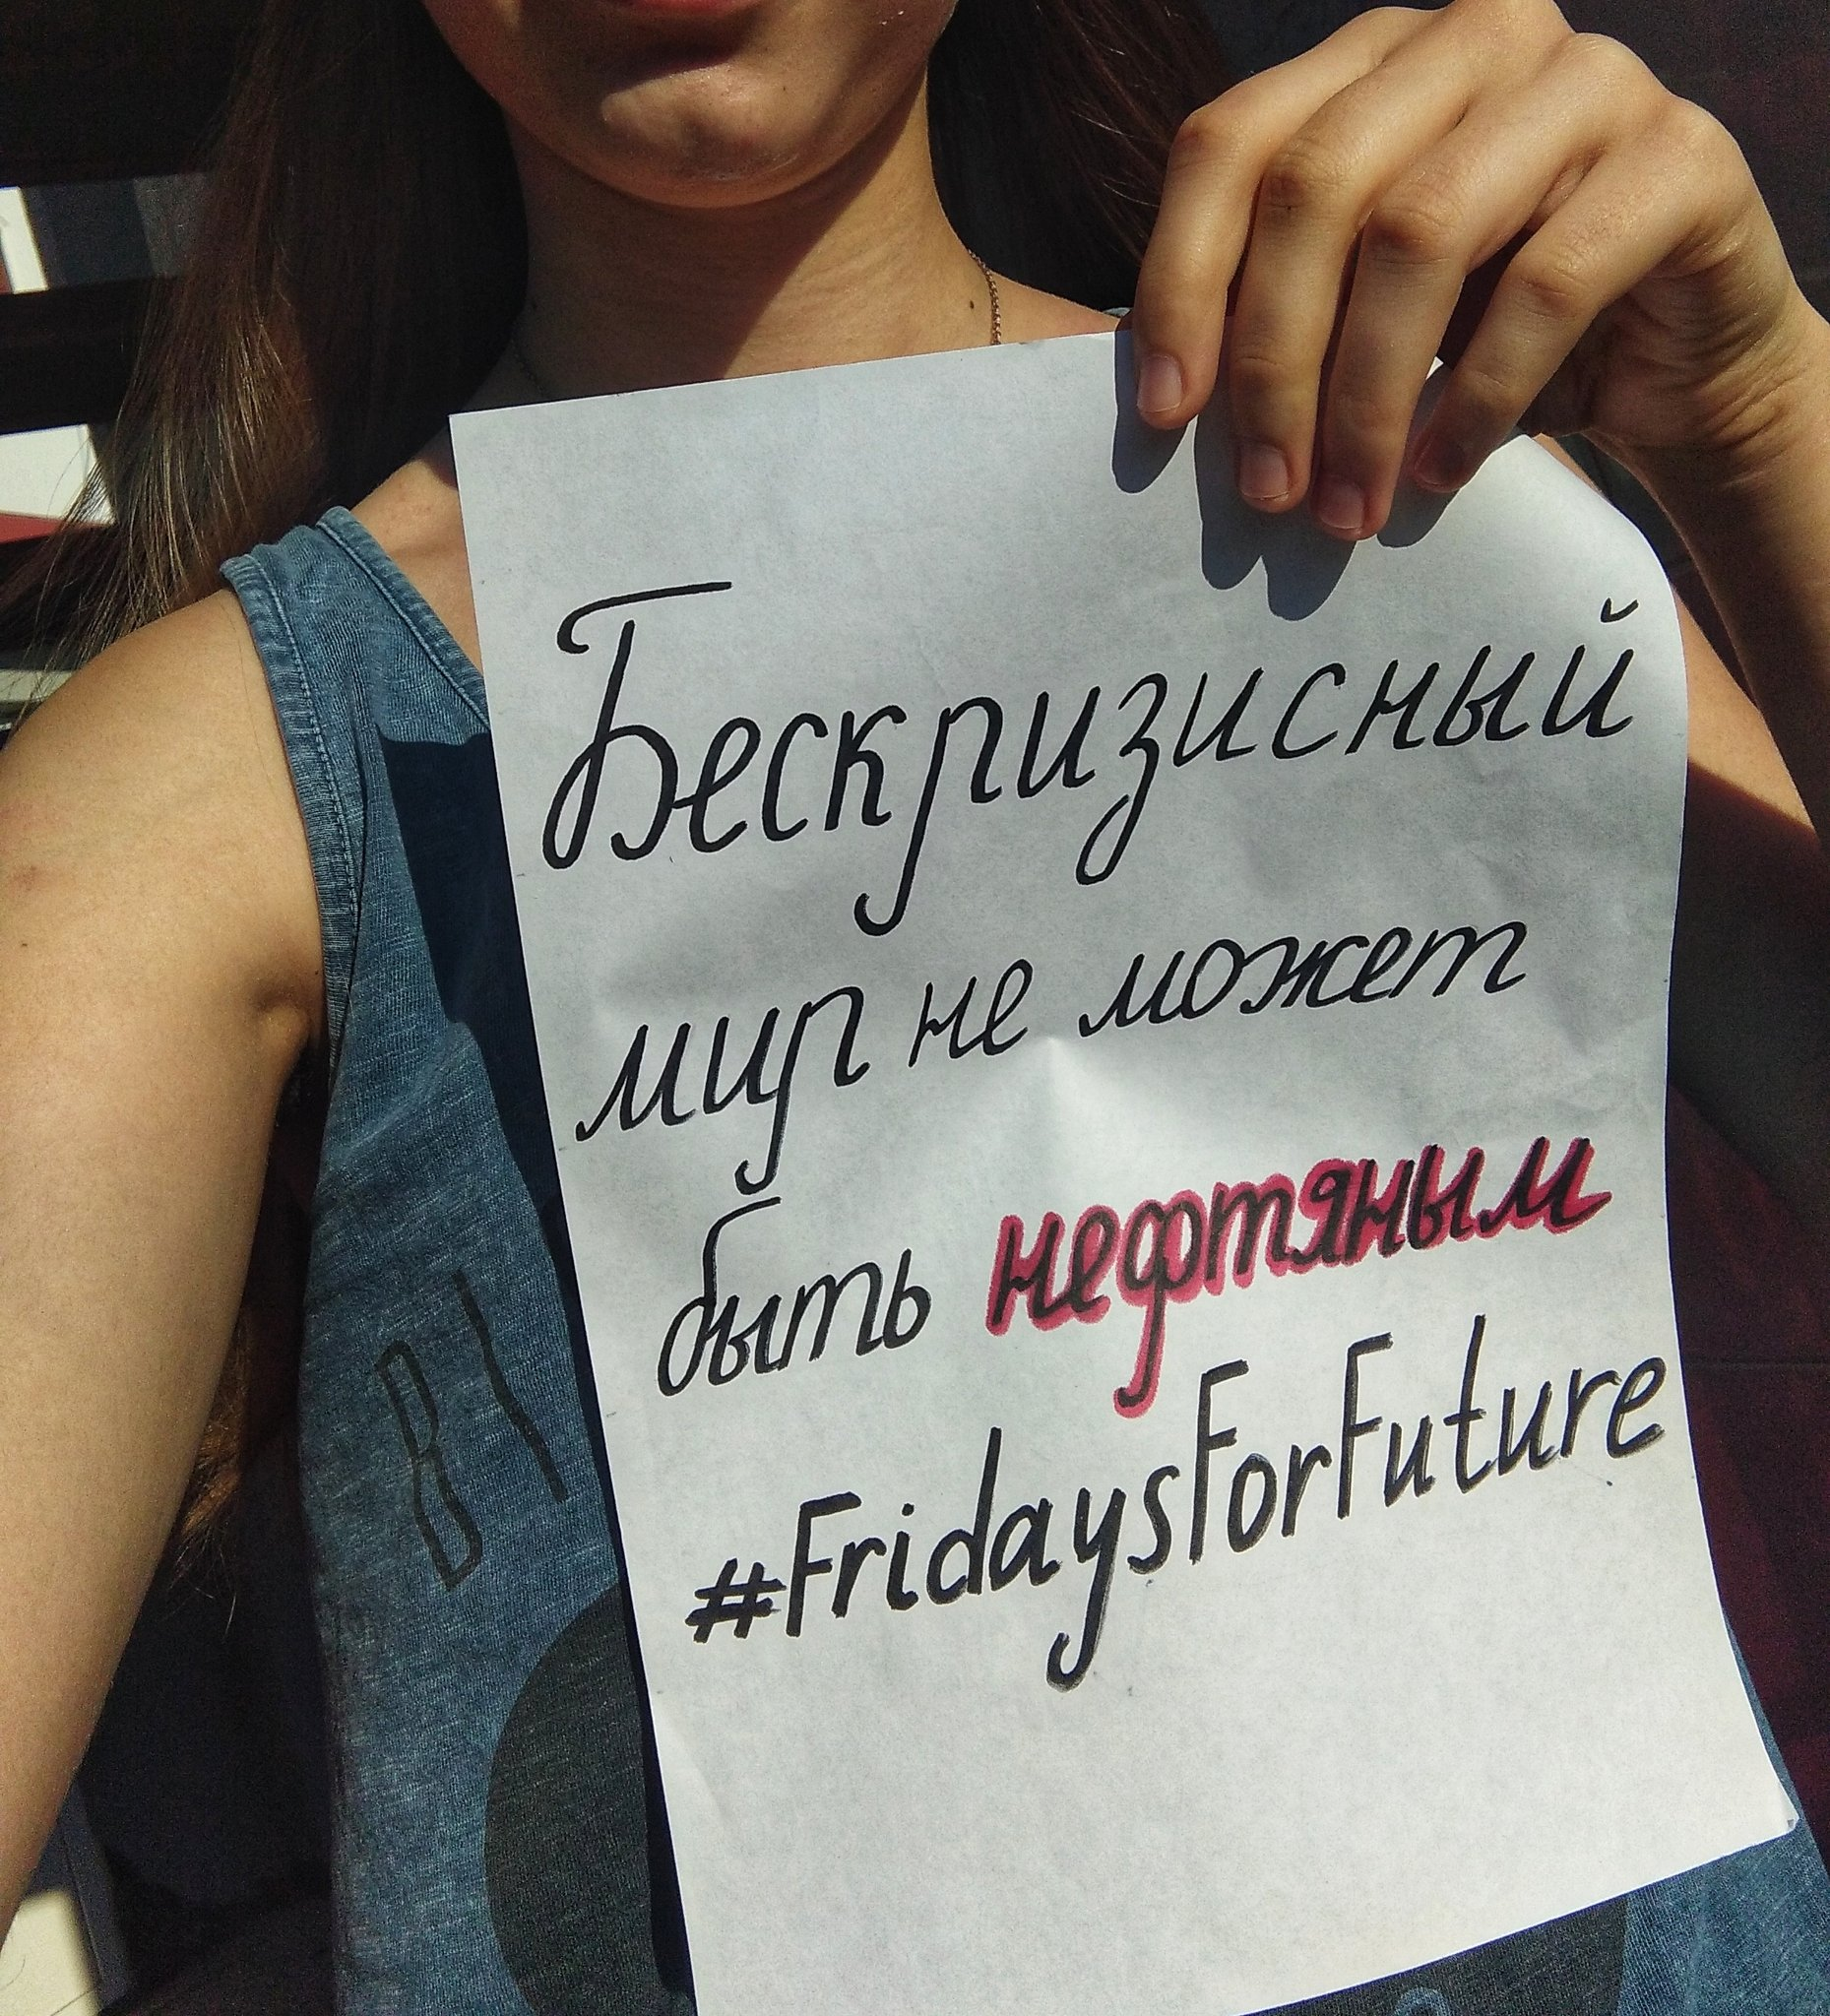 Бескризисный
мир не может
быть нефтяным
#FridaysForFuture